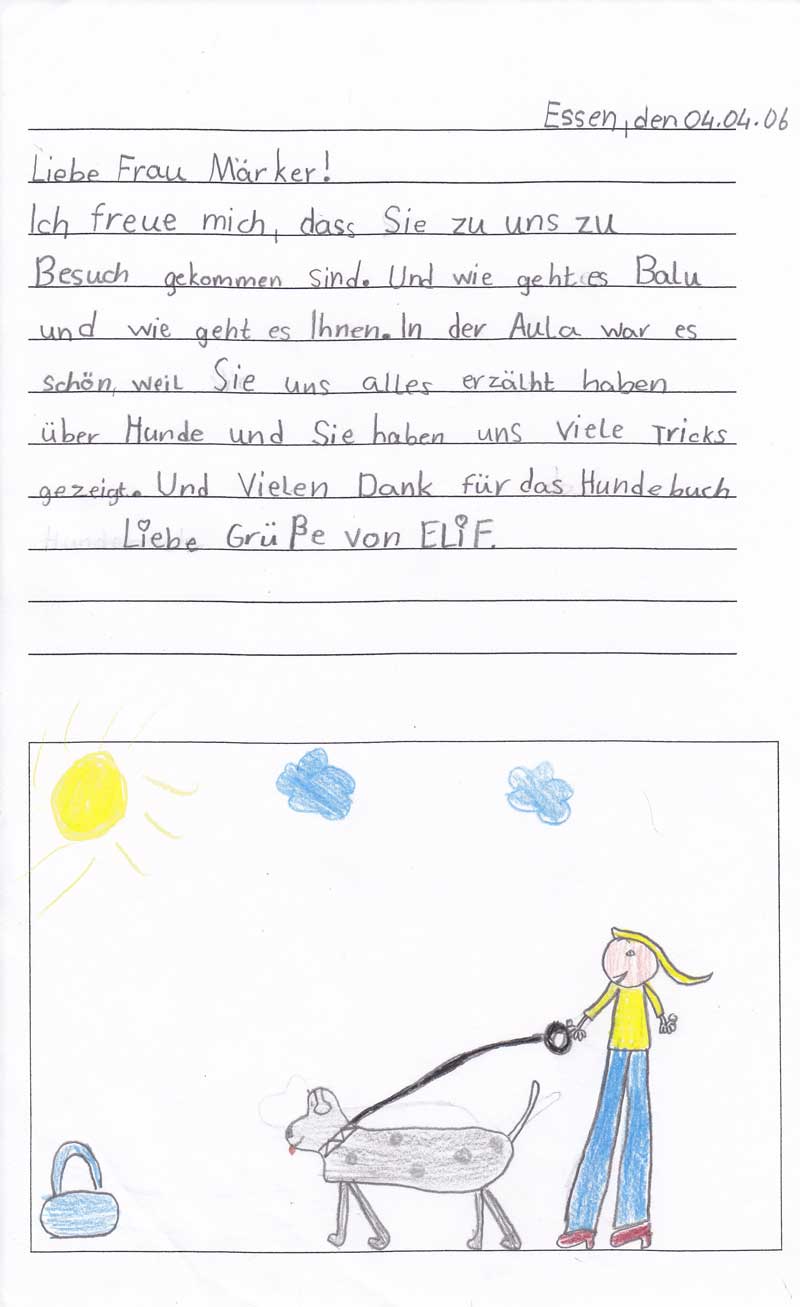 Essen, den 04.04.06
Liebe Frau Märker!
Ich freue mich, dass Sie zu uns zu
Besuch gekommen sind. Und wie geht es Balu
und wie geht es Ihnen. In der Aula war es
schön, weil Sie uns alles erzälht haben
über Hunde und Sie haben uns viele Tricks
gezeigt. Und Vielen Dank für das Hundebuch
Liebe Grüße von ELiF.